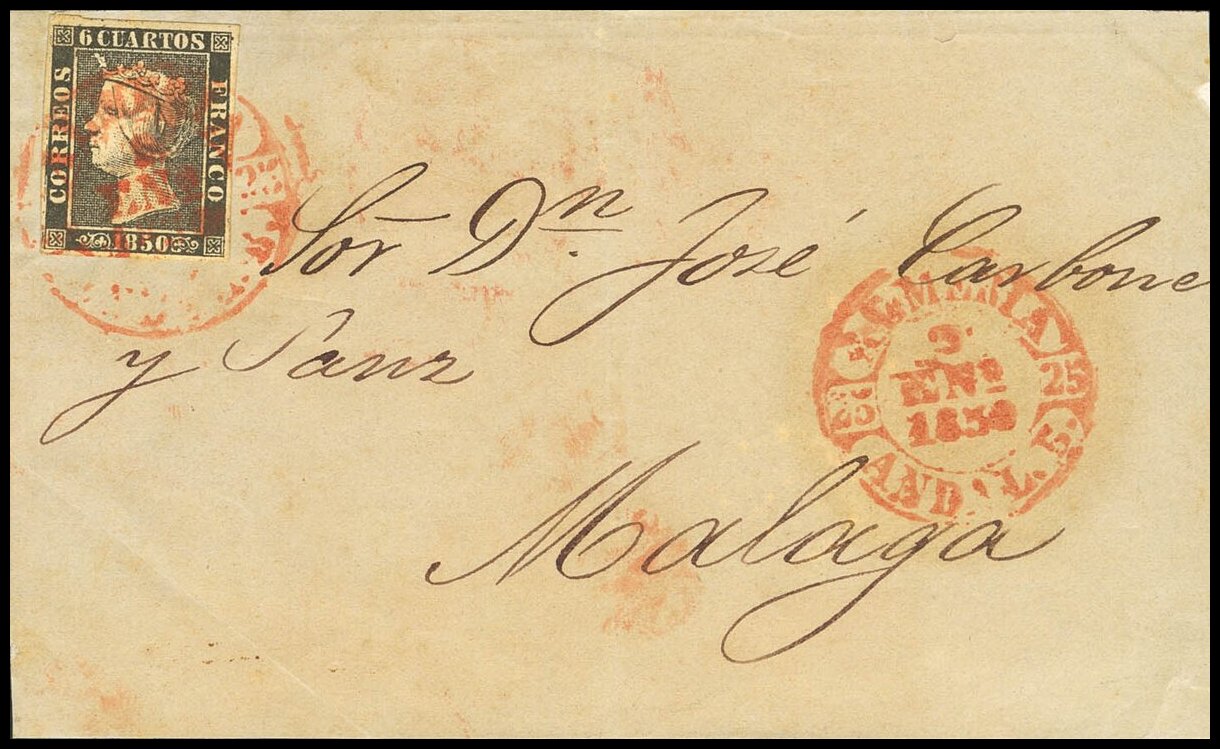 6 CUARTOS
CORREOS
FRANCO
1850
Sor Dn. José Carbone
y Sanz
Malaga
ALMERIA
2
ENº
1850
25
25
AND. L. S.